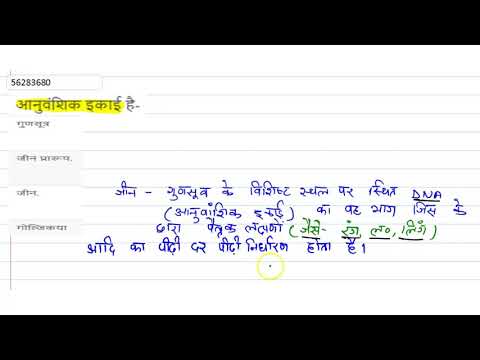 56283680
आनुवंशिक इकाई है-
गुणसूत्र
जीन प्रारूप.
जीन.
गोल्जिकाय
जीन - गुणसूत्र के विशिष्ट स्थल पर स्थित DNA
(आनुवांशिक इकाई) का वह भाग जिस के
द्वारा पैतृक लक्षणों (जैसे- रंग, ल०, लिंग)
आदि का पीढ़ी दर पीढ़ी निर्धारण होता है।